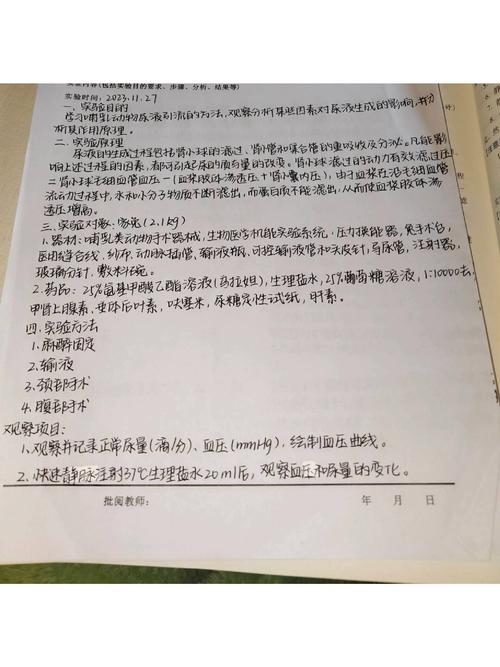 实验内容(包括实验目的要求、步骤、分析、结果等)
实验时间: 2023.11.27
一、实验目的
学习哺乳动物尿液引流的方法,观察分析某些因素对尿液生成的影响,并分
析其作用原理。
二、实验原理
尿液的生成过程包括肾小球的滤过、肾小管和集合管的重吸收及分泌。凡能影
响上述过程的因素,都可引起尿的质与量的改变。肾小球滤过的动力有效滤过压
=肾小球毛细血管血压-(血浆胶体渗透压+肾小囊内压),由于血浆在沿毛细血管
流动过程中,水和小分子物质不断滤出,而蛋白质不能滤出,从而使血浆胶体渗
透压增高。
三、实验对象:家兔(2.1kg)
1.器材:哺乳类动物手术器械,生物医学机能实验系统,压力换能器,兔手术台,
医用缝合线,纱布,动脉插管,输液瓶,可控输液管和头皮针,导尿管,注射器,
玻璃分针,
2.药品:25%氨基甲酸乙酯溶液(乌拉坦),生理盐水,25%葡萄糖溶液,1:10000去
甲肾上腺素,垂体后叶素,呋塞米,尿糖定性试纸,肝素。
四、实验方法
1.麻醉固定
2.输液
3.颈部手术
4.腹部手术
观察项目:
1.观察并记录正常尿量(滴/分)、血压(mmHg),绘制血压曲线。
2.快速静脉注射37℃生理盐水20ml后,观察血压和尿量的变化。
批阅教师: 年 月 日